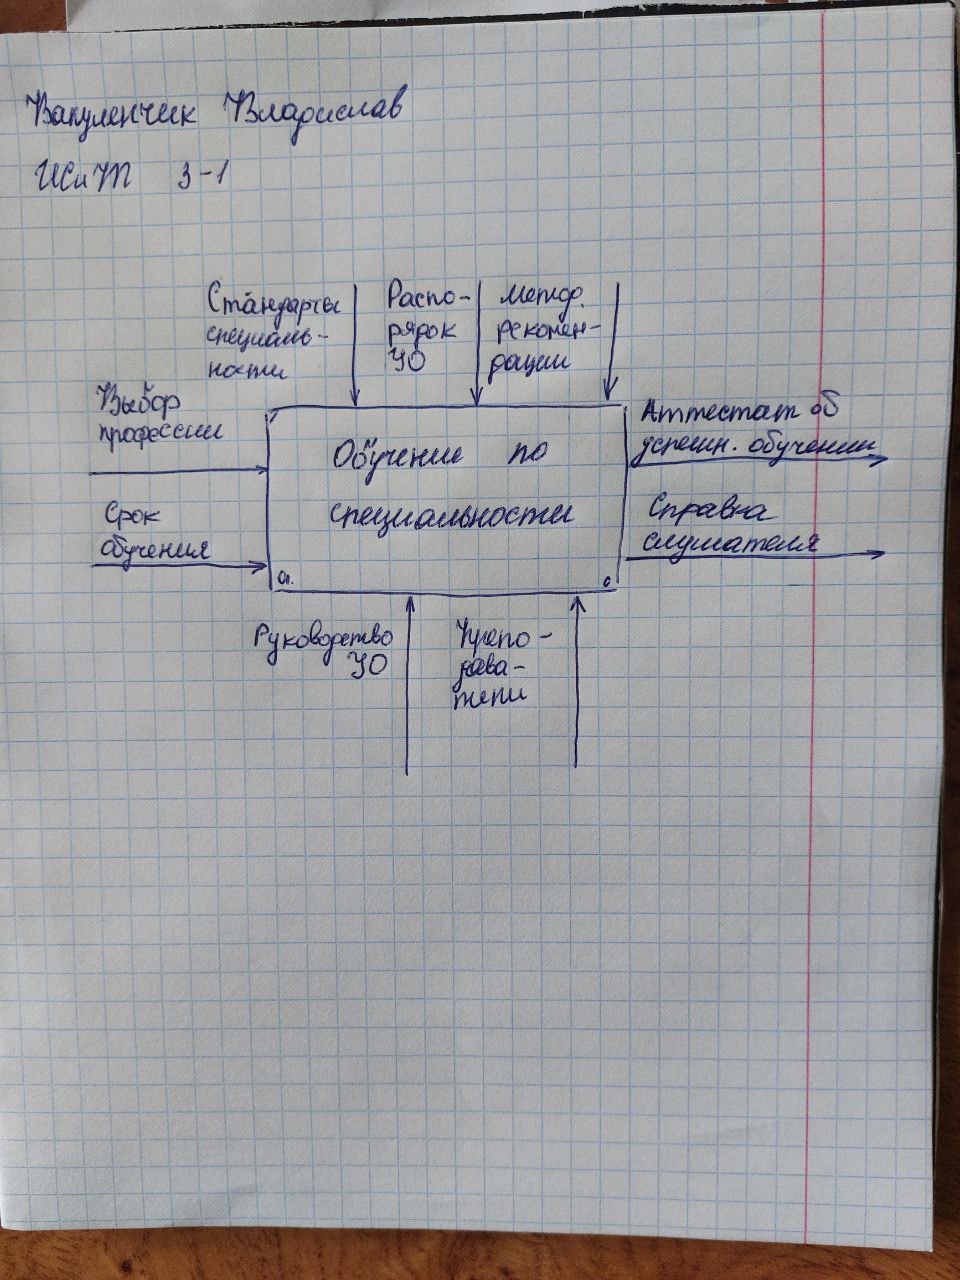 Вакуленчик Владислав
ИСиТ 3-1
Стандарты
специаль-
ности
Распо-
рядок
УО
Метод.
рекомен-
дации
Выбор
профессии
Срок
обучения
Обучение по
специальности
0
Аттестат об
успешн. обучении
Справка
слушателя
Руководство
УО
Препо-
дава-
тели